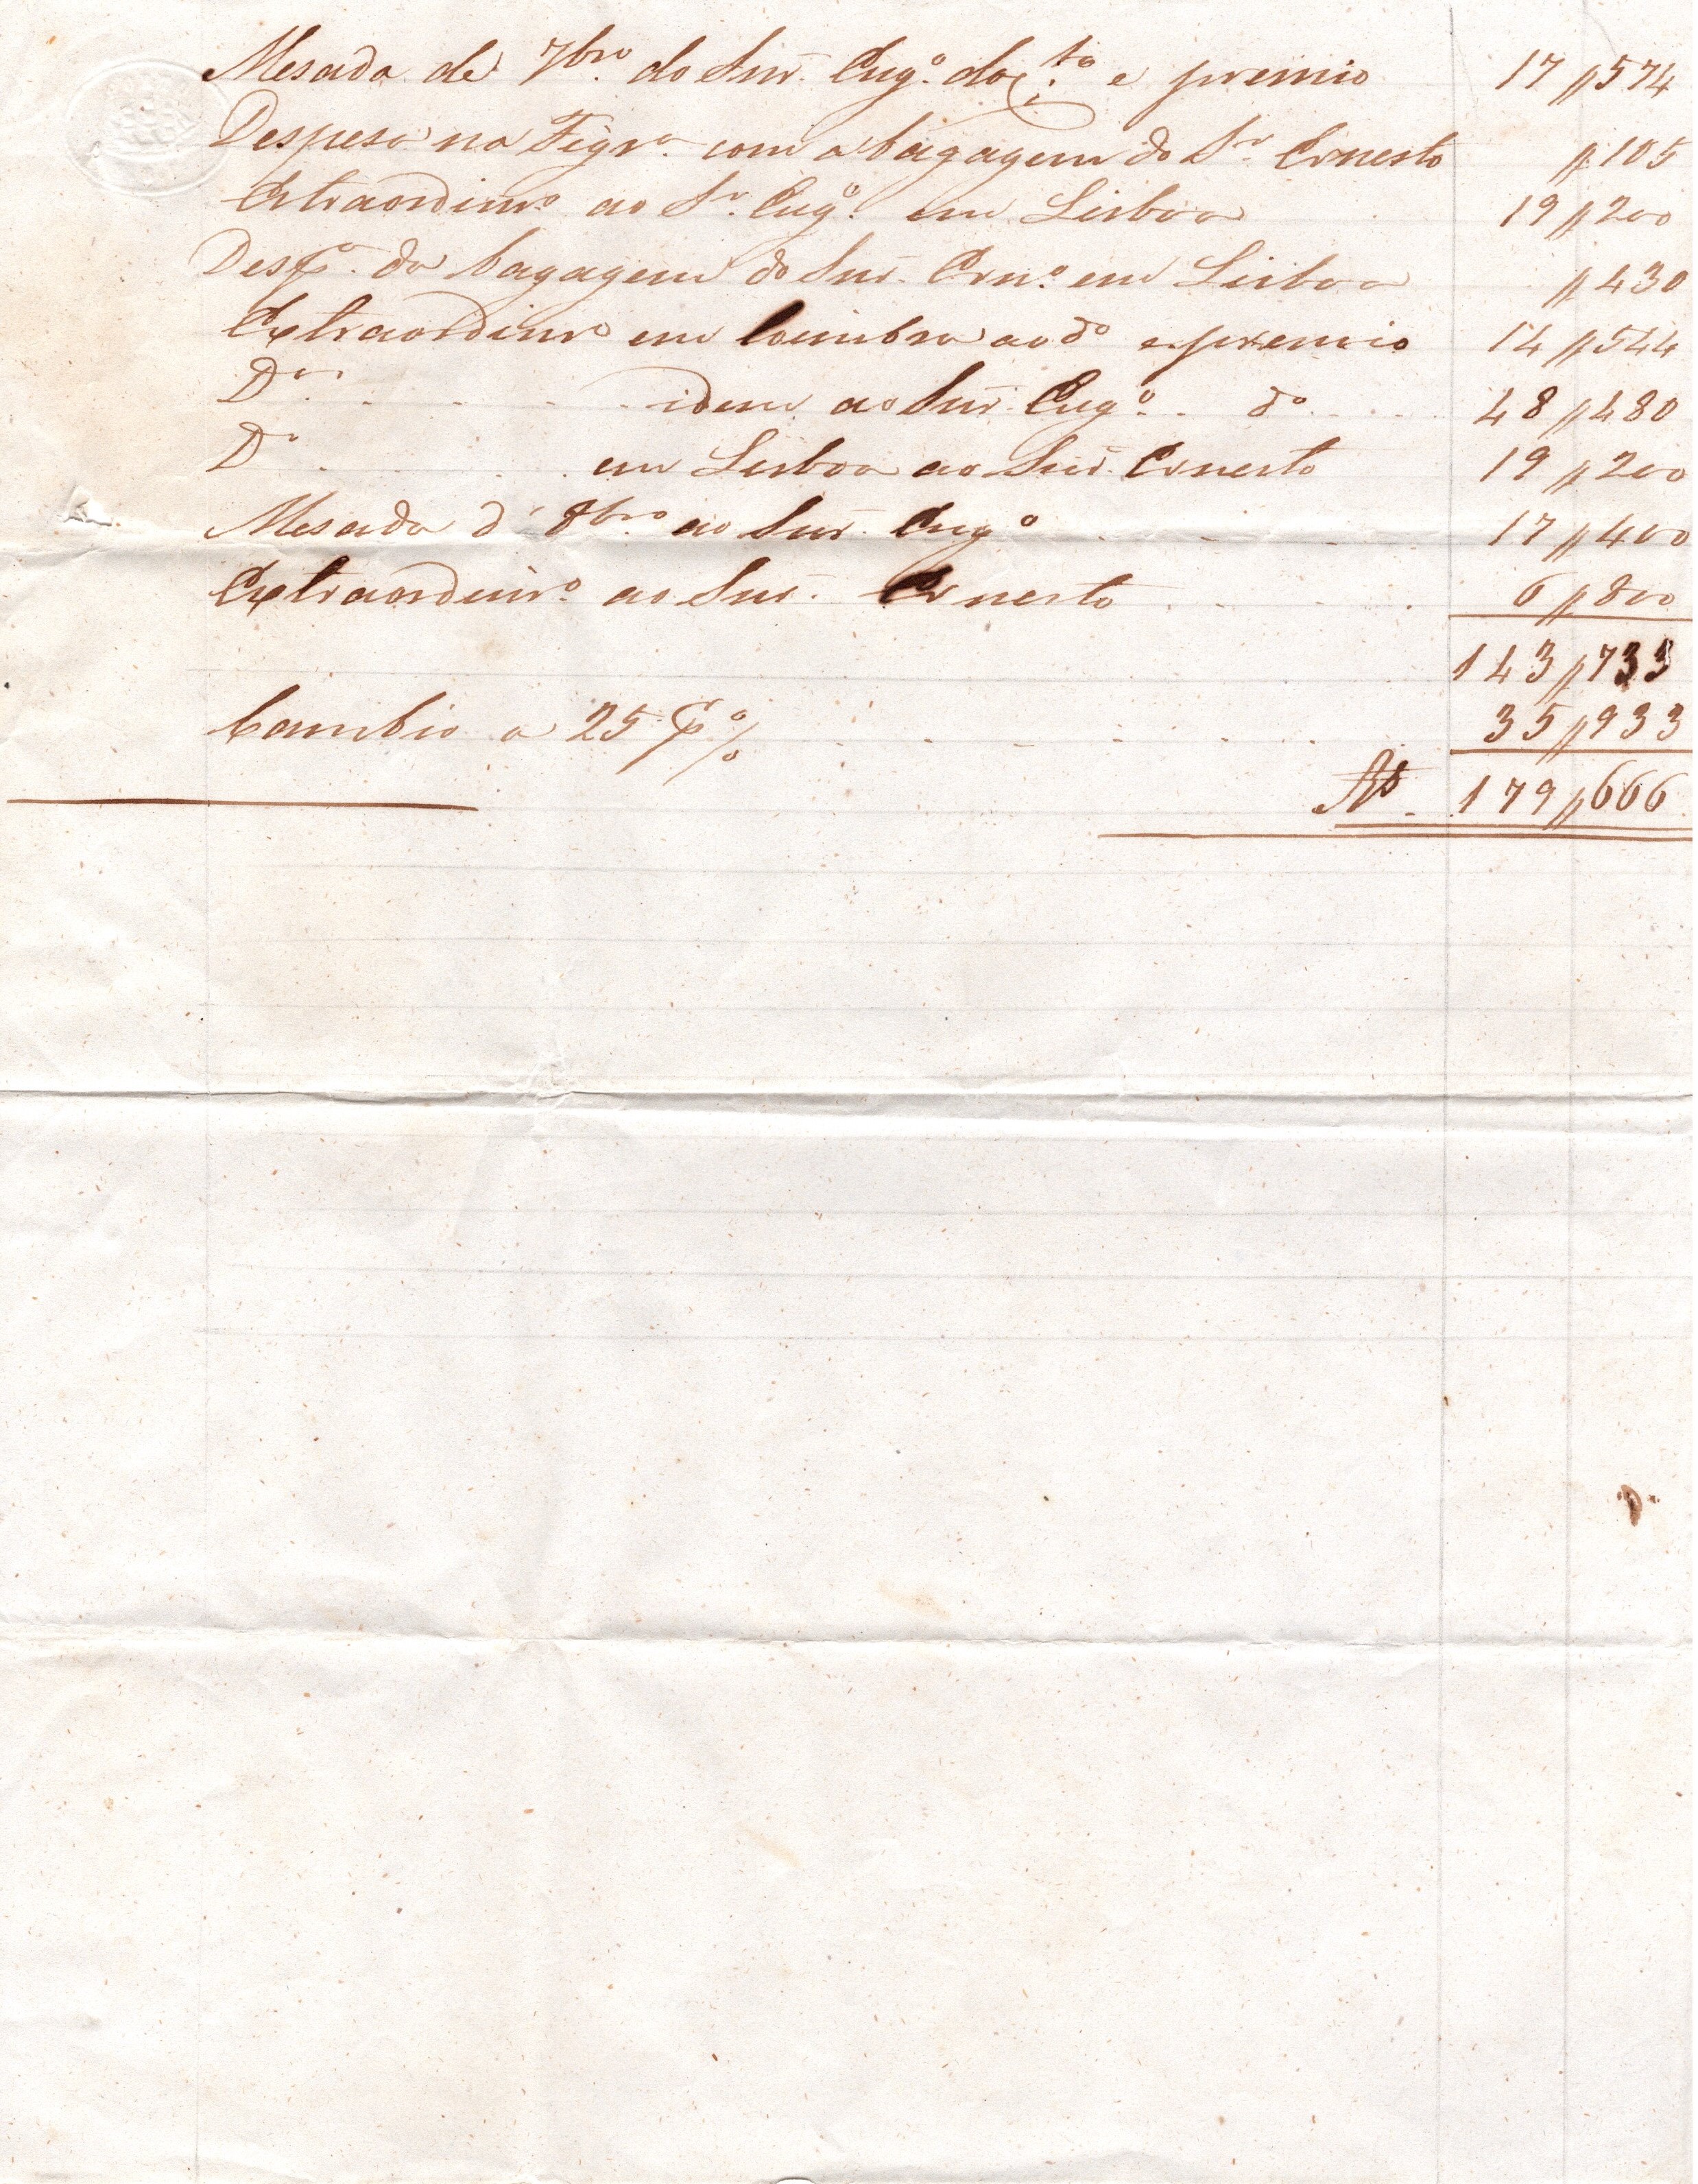 Mesada de 7bro. do Snr. Eug.º do C.to e premio 17$574
Despesa na Figra. com a bagagem do Sr. Ernesto $105
Extraordinro. ao Sr. Eug.º em Lisboa 19$200
Desp.a da bagagem do Snr. Ern.º em Lisboa $430
Extraordinro em Coimbra ao do e premio 14$544
Do. idem ao Snr. Eug.º do 48$480
Do em Lisboa ao Snr. Ernesto 19$200
Mesada d' 8bro. ao Snr. Eug.º 17$400
Extraordinro. ao Snr. Ernesto 6$800
143$733
Cambio a 25 p% 35$933
Rs. 179$666